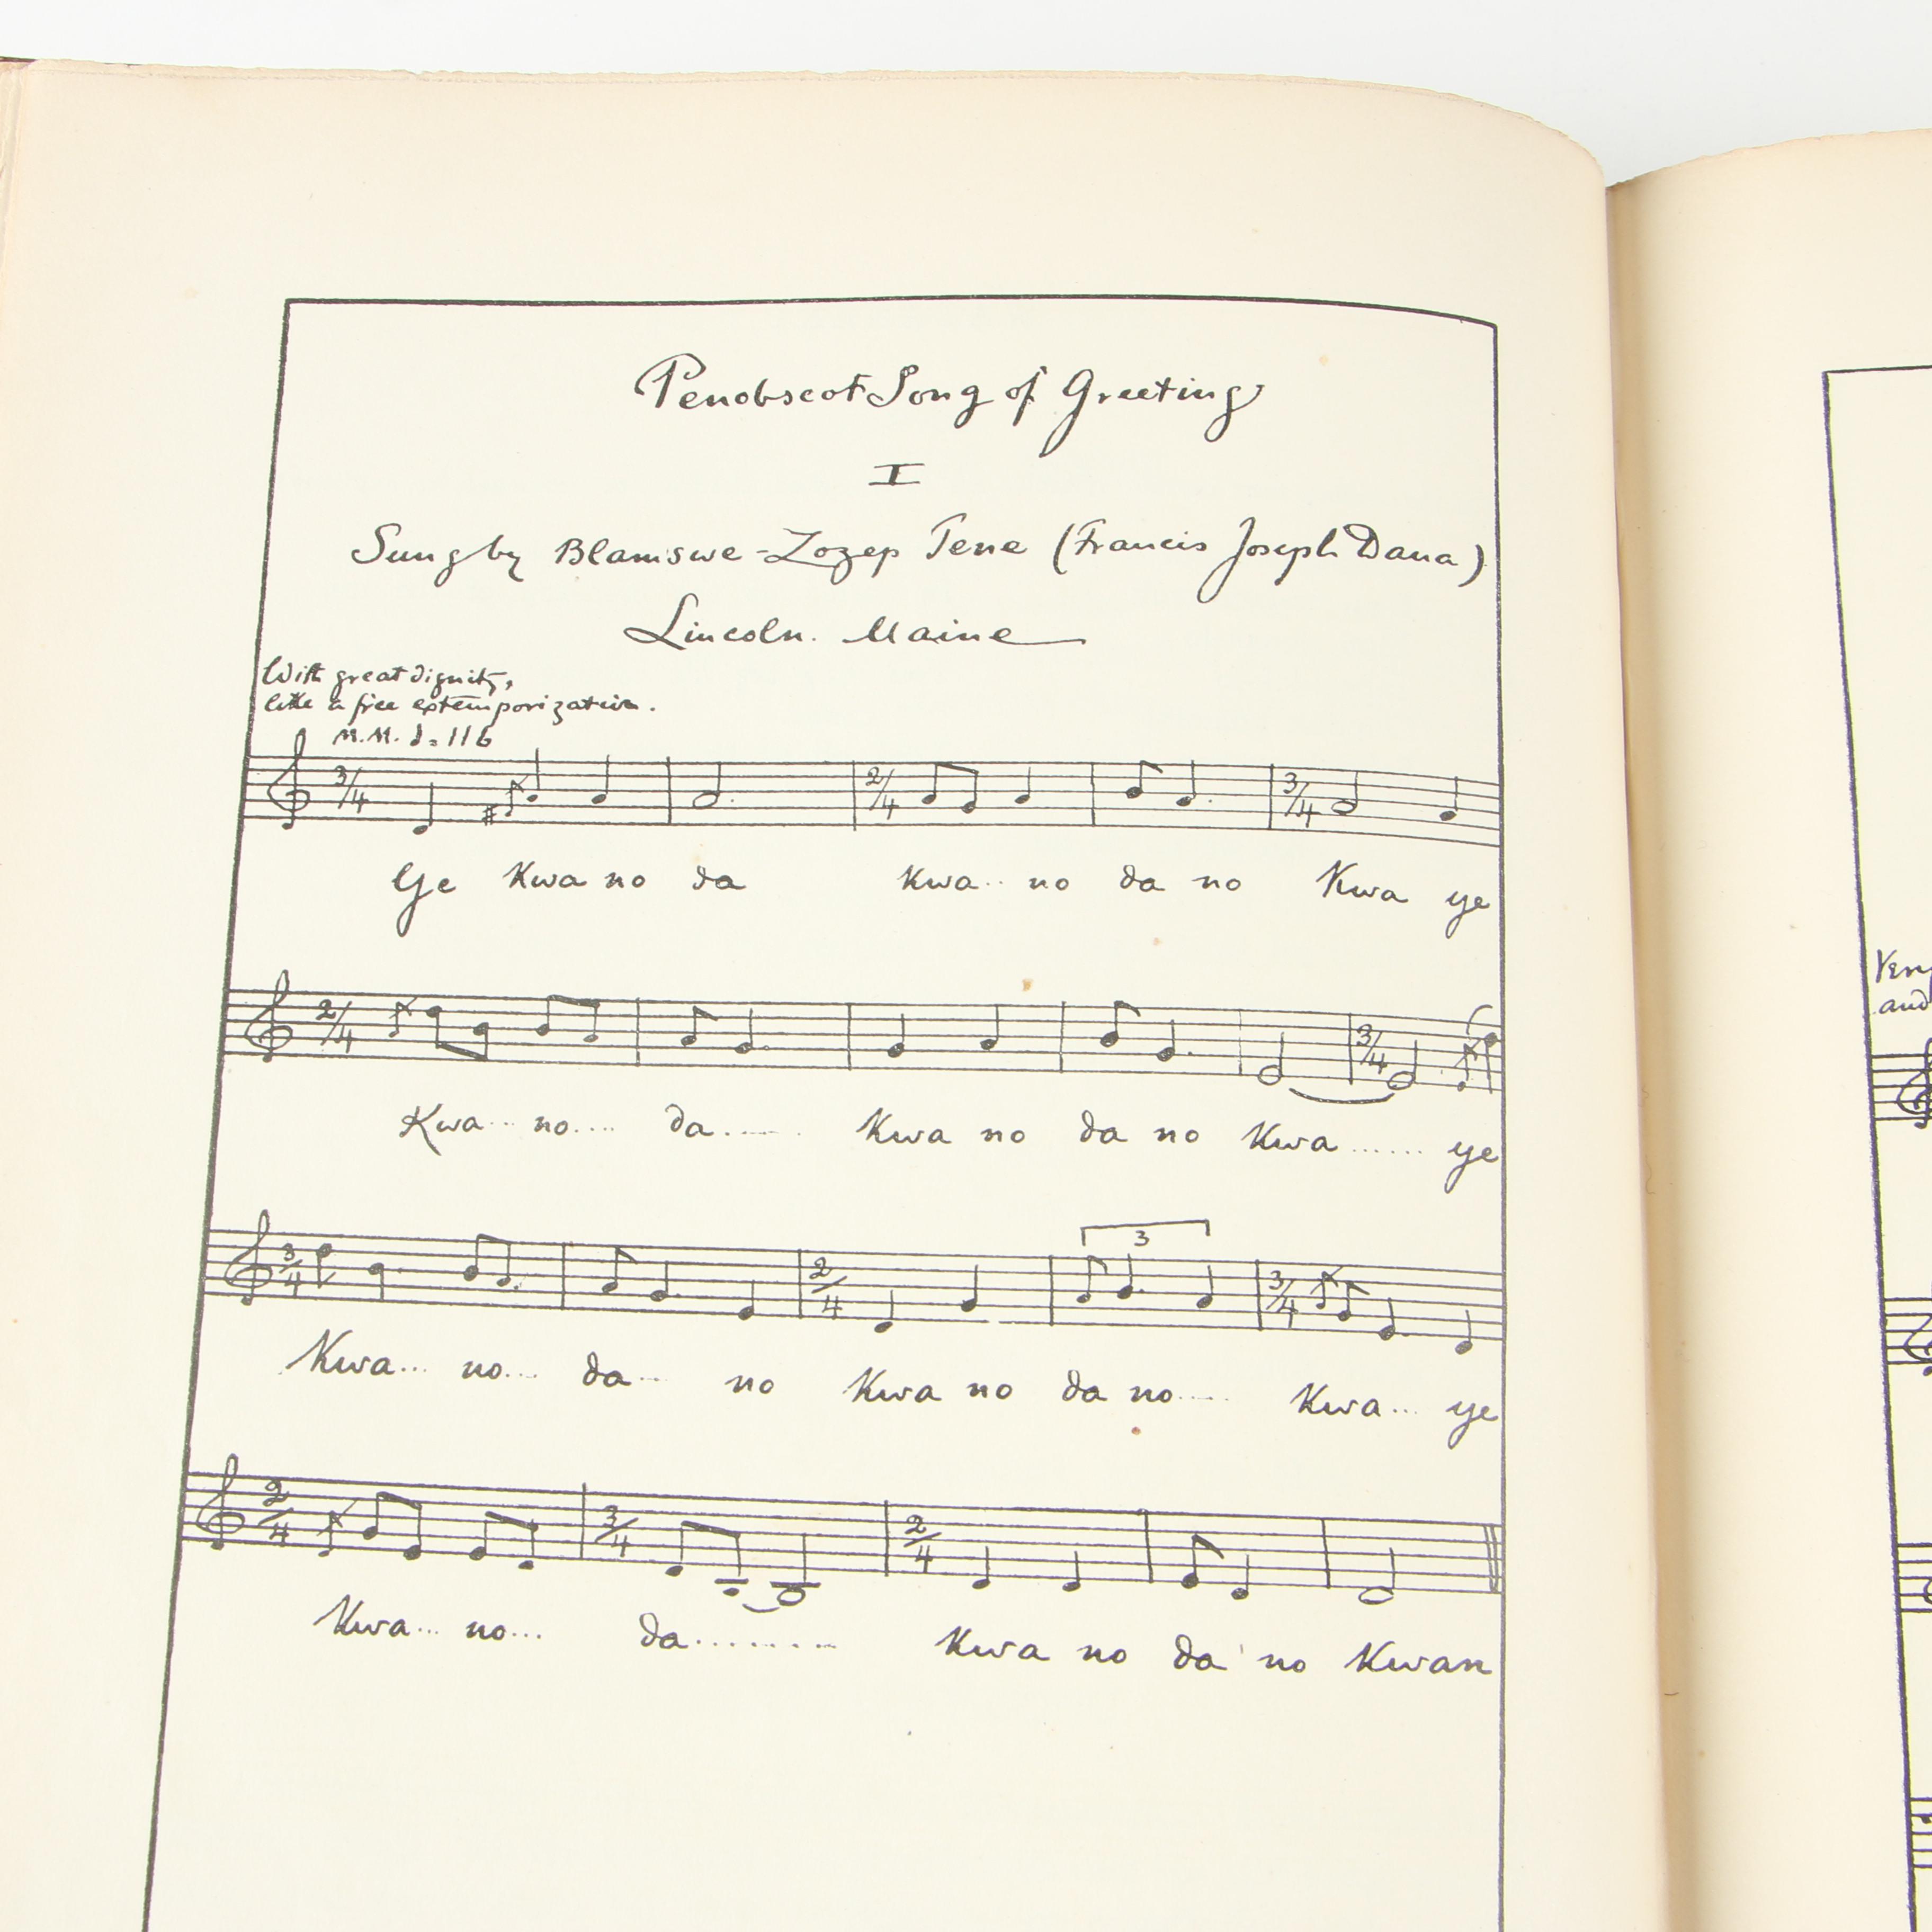 Penobscot Song of Greeting
I
Sung by Blamswe-Zozep Tene (Francis Joseph Dana)
Lincoln. Maine
With great dignity,
like a free extemporization.
M.M. ♩=116
3/4 2/4 3/4
Ge Kwa no da Kwa.. no da no Kwa ye
2/4 3/4
Kwa... no.... da...... Kwa no da no Kwa...... ye
3
3/4 2/4 3/4
Kwa... no.... da... no Kwa no da no..... Kwa... ye
2/4 3/4 2/4
Kwa... no... da......... Kwa no da no Kwan
and